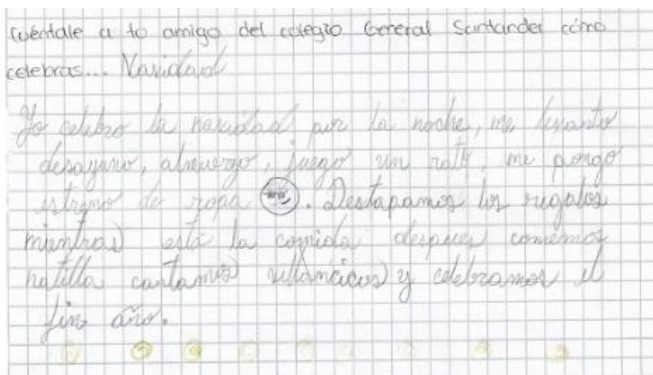 Cuéntale a to amigo del colegio General Santander cómo
celebras... Navidad
Yo celebro la navidad por la noche, me levanto
desayuno, almuerzo, juego un rato, me pongo
estreno de ropa. Destapamos los regalos
mientras está la comida despues comemos
natilla cantamos villancicos y celebramos el
fin año.